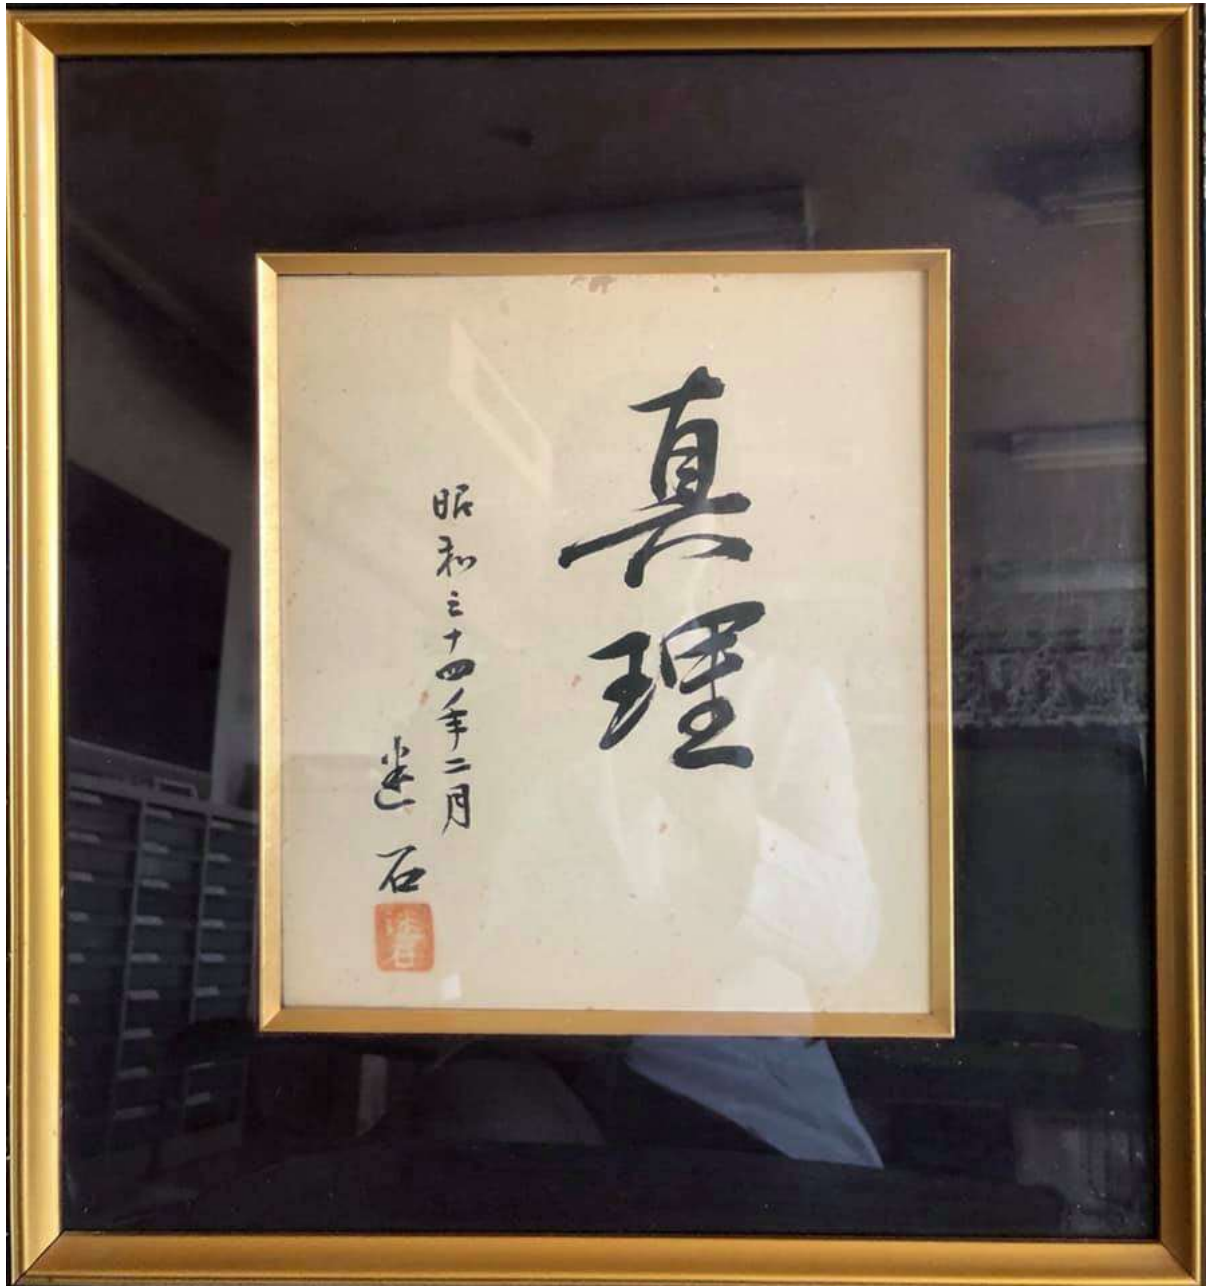 真理
昭和三十四年二月
迷石